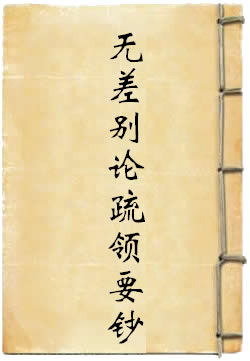 无差别论疏领要钞